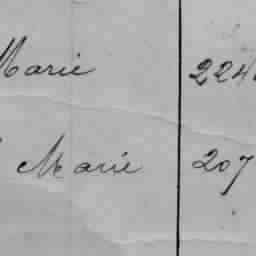 Marie 224
Marie 207